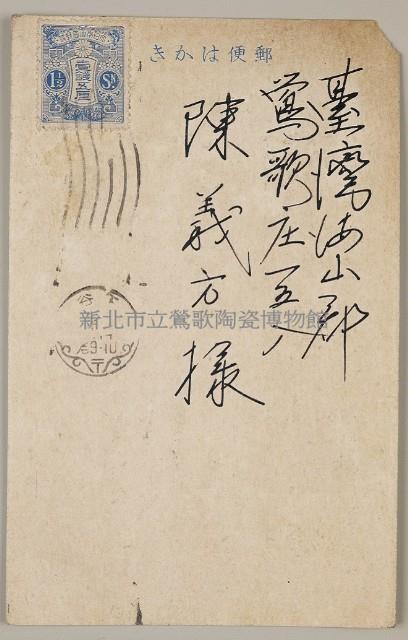 郵便はかき
臺灣海山郡
鶯歌庄一五八
陳義方様
1½ Sn
壹錢五厘
新北市立鶯歌陶瓷博物館